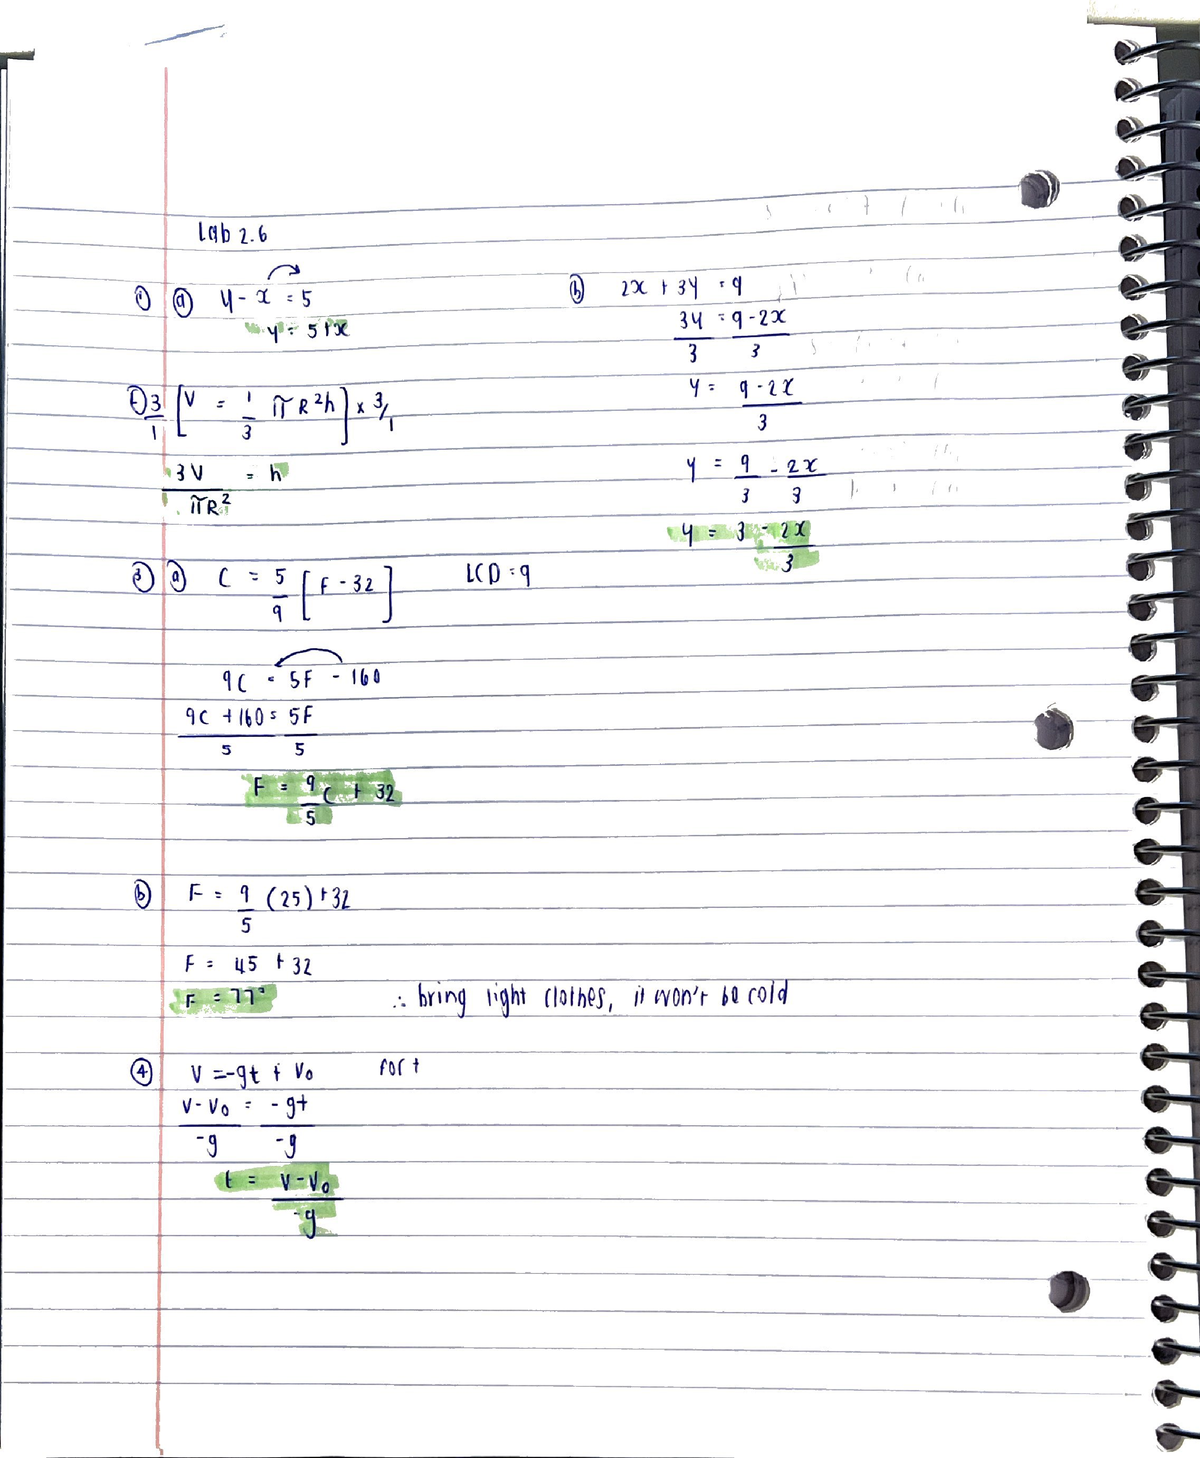 Lab 2.6
① ⓐ y - x = 5
y = 5 + x
ⓑ 2x + 3y = 9
3y = 9 - 2x
3 3
y = 9 - 2x
3
y = 9 - 2x
3 3
y = 3 - 2x
3
3 [V = 1 π R²h] x 3/1
1 3
3V = h
πR²
③ ⓐ C = 5 [F - 32] LCD = 9
9
9C = 5F - 160
9C + 160 = 5F
5 5
F = 9 C + 32
5
ⓑ F = 9 (25) + 32
5
F = 45 + 32
F = 77°
∴ bring light clothes, it won't be cold
④ V = -gt + V₀ for t
V - V₀ = -gt
-g -g
t = V - V₀
-g